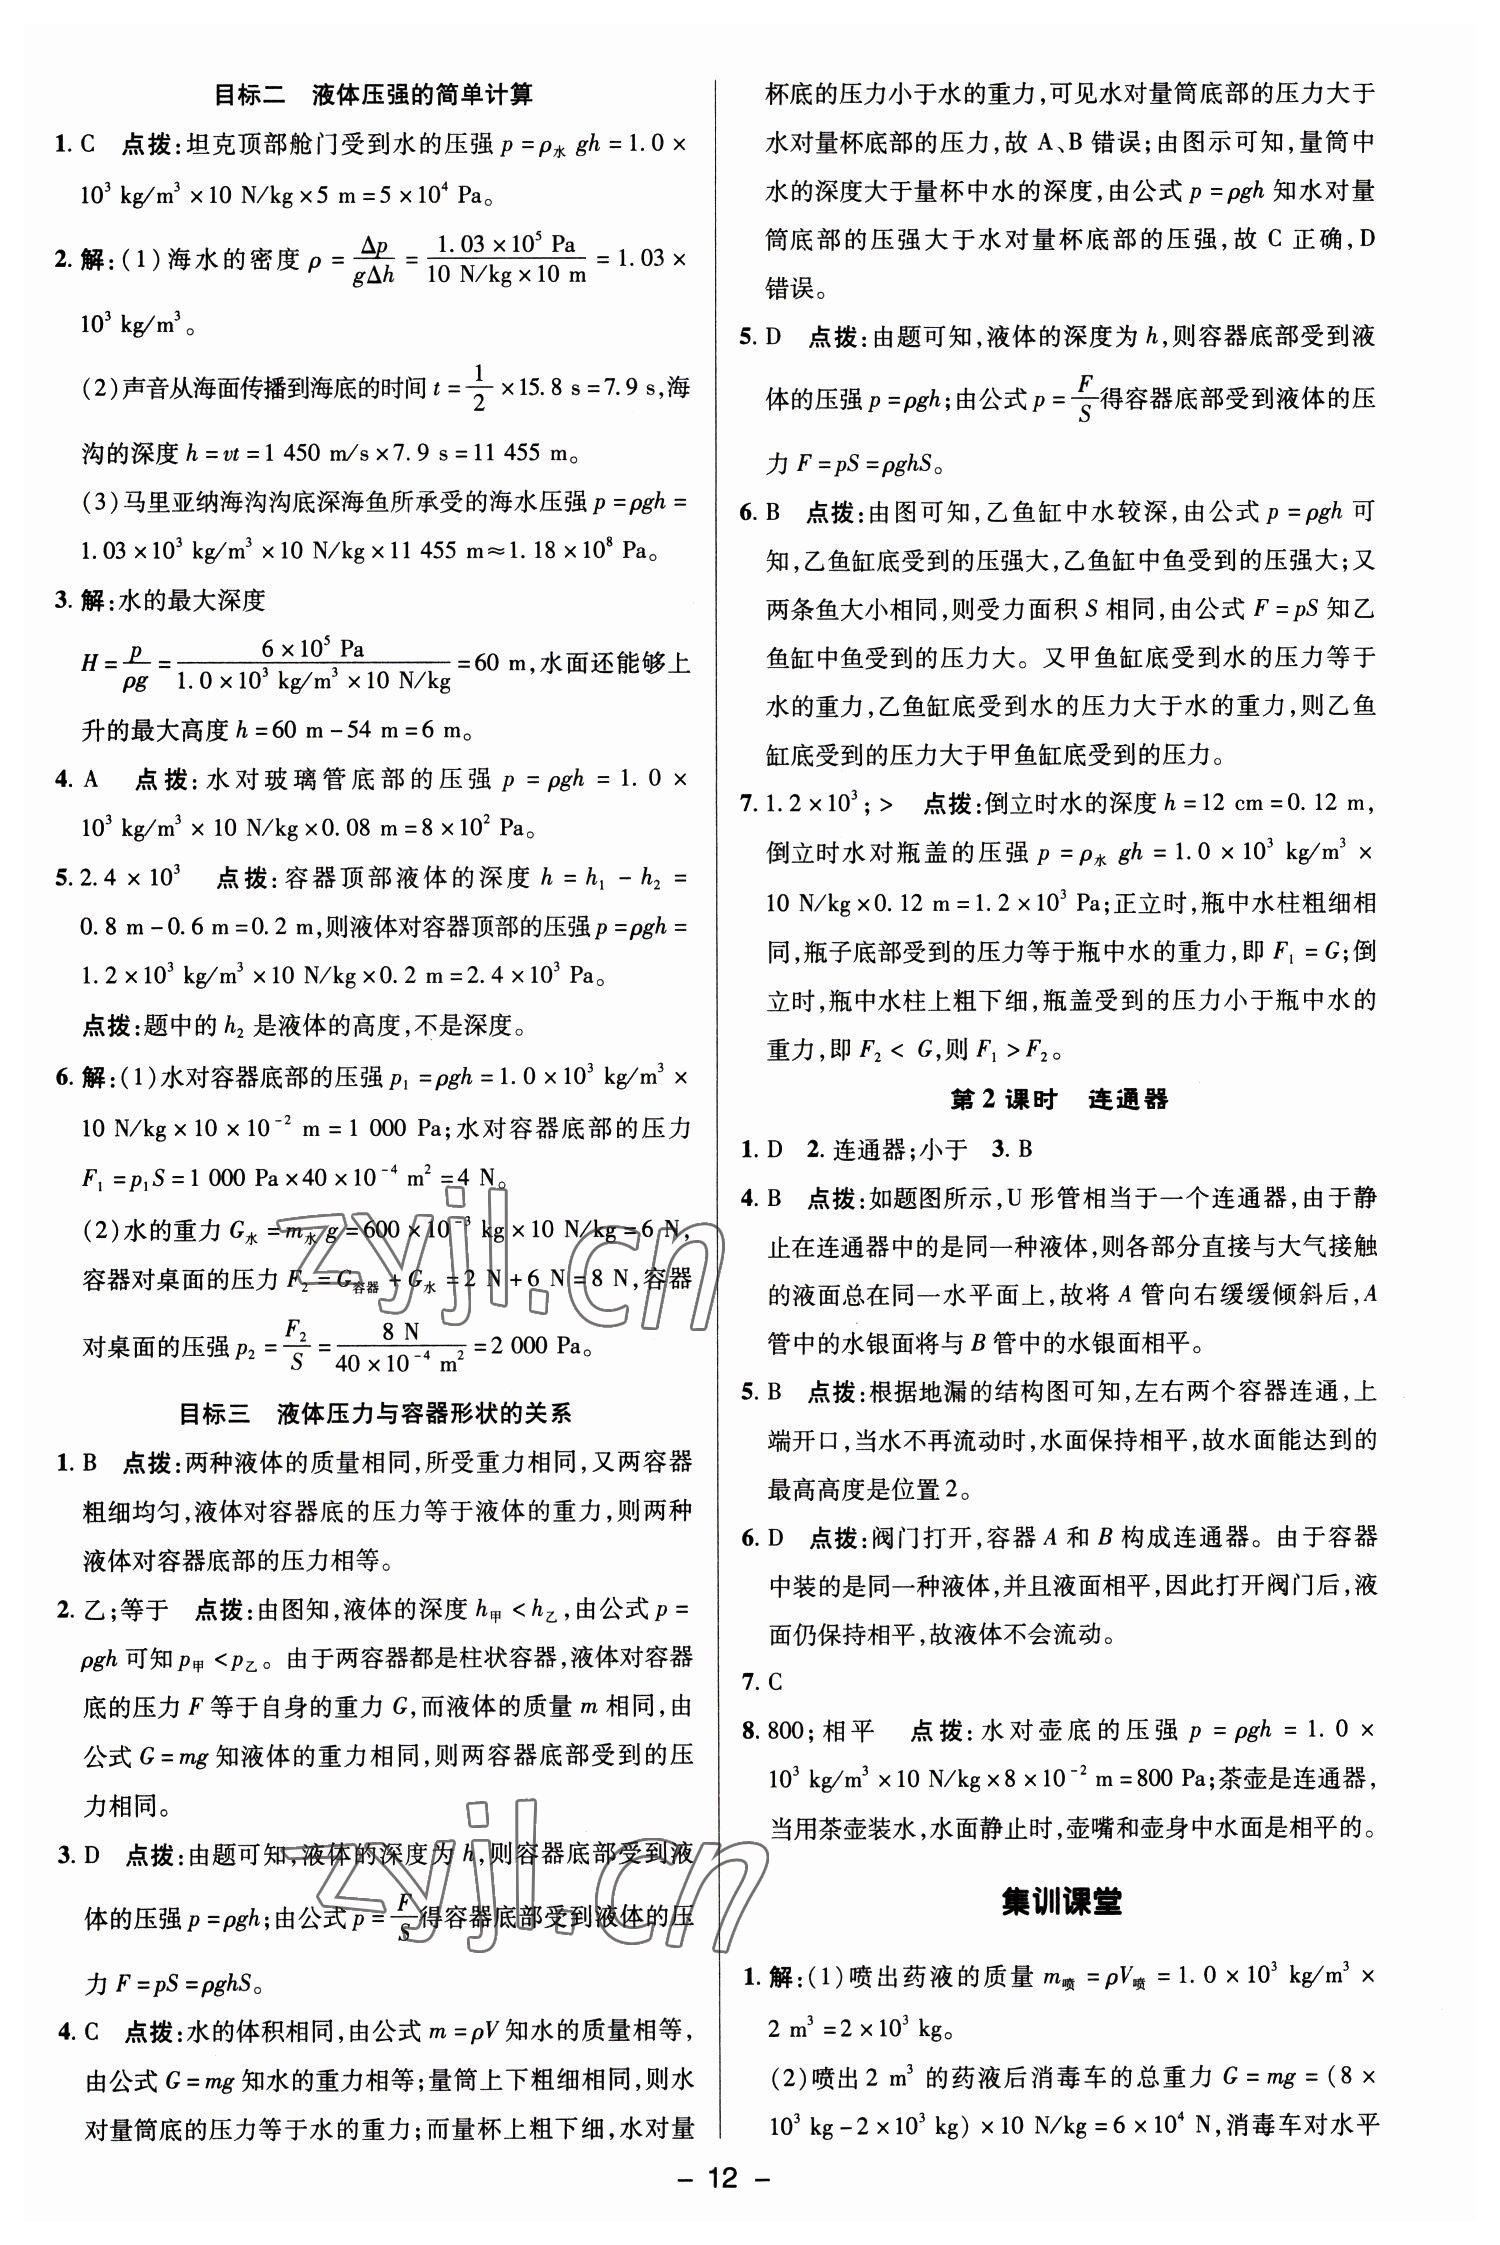 目标二 液体压强的简单计算
1. C 点拨:坦克顶部舱门受到水的压强 p=ρ水 gh=1.0×
10³ kg/m³×10 N/kg×5 m=5×10⁴ Pa。
2. 解:(1)海水的密度 ρ=Δp/(gΔh)=(1.03×10⁵ Pa)/(10 N/kg×10 m)=1.03×
10³ kg/m³。
(2)声音从海面传播到海底的时间 t=1/2×15.8 s=7.9 s,海
沟的深度 h=vt=1 450 m/s×7.9 s=11 455 m。
(3)马里亚纳海沟沟底深海鱼所承受的海水压强 p=ρgh=
1.03×10³ kg/m³×10 N/kg×11 455 m≈1.18×10⁸ Pa。
3. 解:水的最大深度
H=p/(ρg)=(6×10⁵ Pa)/(1.0×10³ kg/m³×10 N/kg)=60 m,水面还能够上
升的最大高度 h=60 m-54 m=6 m。
4. A 点拨:水对玻璃管底部的压强 p=ρgh=1.0×
10³ kg/m³×10 N/kg×0.08 m=8×10² Pa。
5. 2.4×10³ 点拨:容器顶部液体的深度 h=h₁-h₂=
0.8 m-0.6 m=0.2 m,则液体对容器顶部的压强 p=ρgh=
1.2×10³ kg/m³×10 N/kg×0.2 m=2.4×10³ Pa。
点拨:题中的 h₂ 是液体的高度,不是深度。
6. 解:(1)水对容器底部的压强 p₁=ρgh=1.0×10³ kg/m³×
10 N/kg×10×10⁻² m=1 000 Pa;水对容器底部的压力
F₁=p₁S=1 000 Pa×40×10⁻⁴ m²=4 N。
(2)水的重力 G水=m水g=600×10⁻³ kg×10 N/kg=6 N,
容器对桌面的压力 F₂=G容器+G水=2 N+6 N=8 N,容器
对桌面的压强 p₂=F₂/S=(8 N)/(40×10⁻⁴ m²)=2 000 Pa。
目标三 液体压力与容器形状的关系
1. B 点拨:两种液体的质量相同,所受重力相同,又两容器
粗细均匀,液体对容器底的压力等于液体的重力,则两种
液体对容器底部的压力相等。
2. 乙;等于 点拨:由图知,液体的深度 h甲<h乙,由公式 p=
ρgh 可知 p甲<p乙。由于两容器都是柱状容器,液体对容器
底的压力 F 等于自身的重力 G,而液体的质量 m 相同,由
公式 G=mg 知液体的重力相同,则两容器底部受到的压
力相同。
3. D 点拨:由题可知,液体的深度为 h,则容器底部受到液
体的压强 p=ρgh;由公式 p=F/S得容器底部受到液体的压
力 F=pS=ρghS。
4. C 点拨:水的体积相同,由公式 m=ρV 知水的质量相等,
由公式 G=mg 知水的重力相等;量筒上下粗细相同,则水
对量筒底的压力等于水的重力;而量杯上粗下细,水对量
杯底的压力小于水的重力,可见水对量筒底部的压力大于
水对量杯底部的压力,故 A、B 错误;由图示可知,量筒中
水的深度大于量杯中水的深度,由公式 p=ρgh 知水对量
筒底部的压强大于水对量杯底部的压强,故 C 正确,D
错误。
5. D 点拨:由题可知,液体的深度为 h,则容器底部受到液
体的压强 p=ρgh;由公式 p=F/S得容器底部受到液体的压
力 F=pS=ρghS。
6. B 点拨:由图可知,乙鱼缸中水较深,由公式 p=ρgh 可
知,乙鱼缸底受到的压强大,乙鱼缸中鱼受到的压强大;又
两条鱼大小相同,则受力面积 S 相同,由公式 F=pS 知乙
鱼缸中鱼受到的压力大。又甲鱼缸底受到水的压力等于
水的重力,乙鱼缸底受到水的压力大于水的重力,则乙鱼
缸底受到的压力大于甲鱼缸底受到的压力。
7. 1.2×10³;> 点拨:倒立时水的深度 h=12 cm=0.12 m,
倒立时水对瓶盖的压强 p=ρ水 gh=1.0×10³ kg/m³×
10 N/kg×0.12 m=1.2×10³ Pa;正立时,瓶中水柱粗细相
同,瓶子底部受到的压力等于瓶中水的重力,即 F₁=G;倒
立时,瓶中水柱上粗下细,瓶盖受到的压力小于瓶中水的
重力,即 F₂<G,则 F₁>F₂。
第2课时 连通器
1. D 2. 连通器;小于 3. B
4. B 点拨:如题图所示,U 形管相当于一个连通器,由于静
止在连通器中的是同一种液体,则各部分直接与大气接触
的液面总在同一水平面上,故将 A 管向右缓缓倾斜后,A
管中的水银面将与 B 管中的水银面相平。
5. B 点拨:根据地漏的结构图可知,左右两个容器连通,上
端开口,当水不再流动时,水面保持相平,故水面能达到的
最高高度是位置2。
6. D 点拨:阀门打开,容器 A 和 B 构成连通器。由于容器
中装的是同一种液体,并且液面相平,因此打开阀门后,液
面仍保持相平,故液体不会流动。
7. C
8. 800;相平 点拨:水对壶底的压强 p=ρgh=1.0×
10³ kg/m³×10 N/kg×8×10⁻² m=800 Pa;茶壶是连通器,
当用茶壶装水,水面静止时,壶嘴和壶身中水面是相平的。
集训课堂
1. 解:(1)喷出药液的质量 m喷=ρV喷=1.0×10³ kg/m³×
2 m³=2×10³ kg。
(2)喷出2 m³ 的药液后消毒车的总重力 G=mg=(8×
10³ kg-2×10³ kg)×10 N/kg=6×10⁴ N,消毒车对水平
- 12 -
zyjl.cn
zyjl.cn